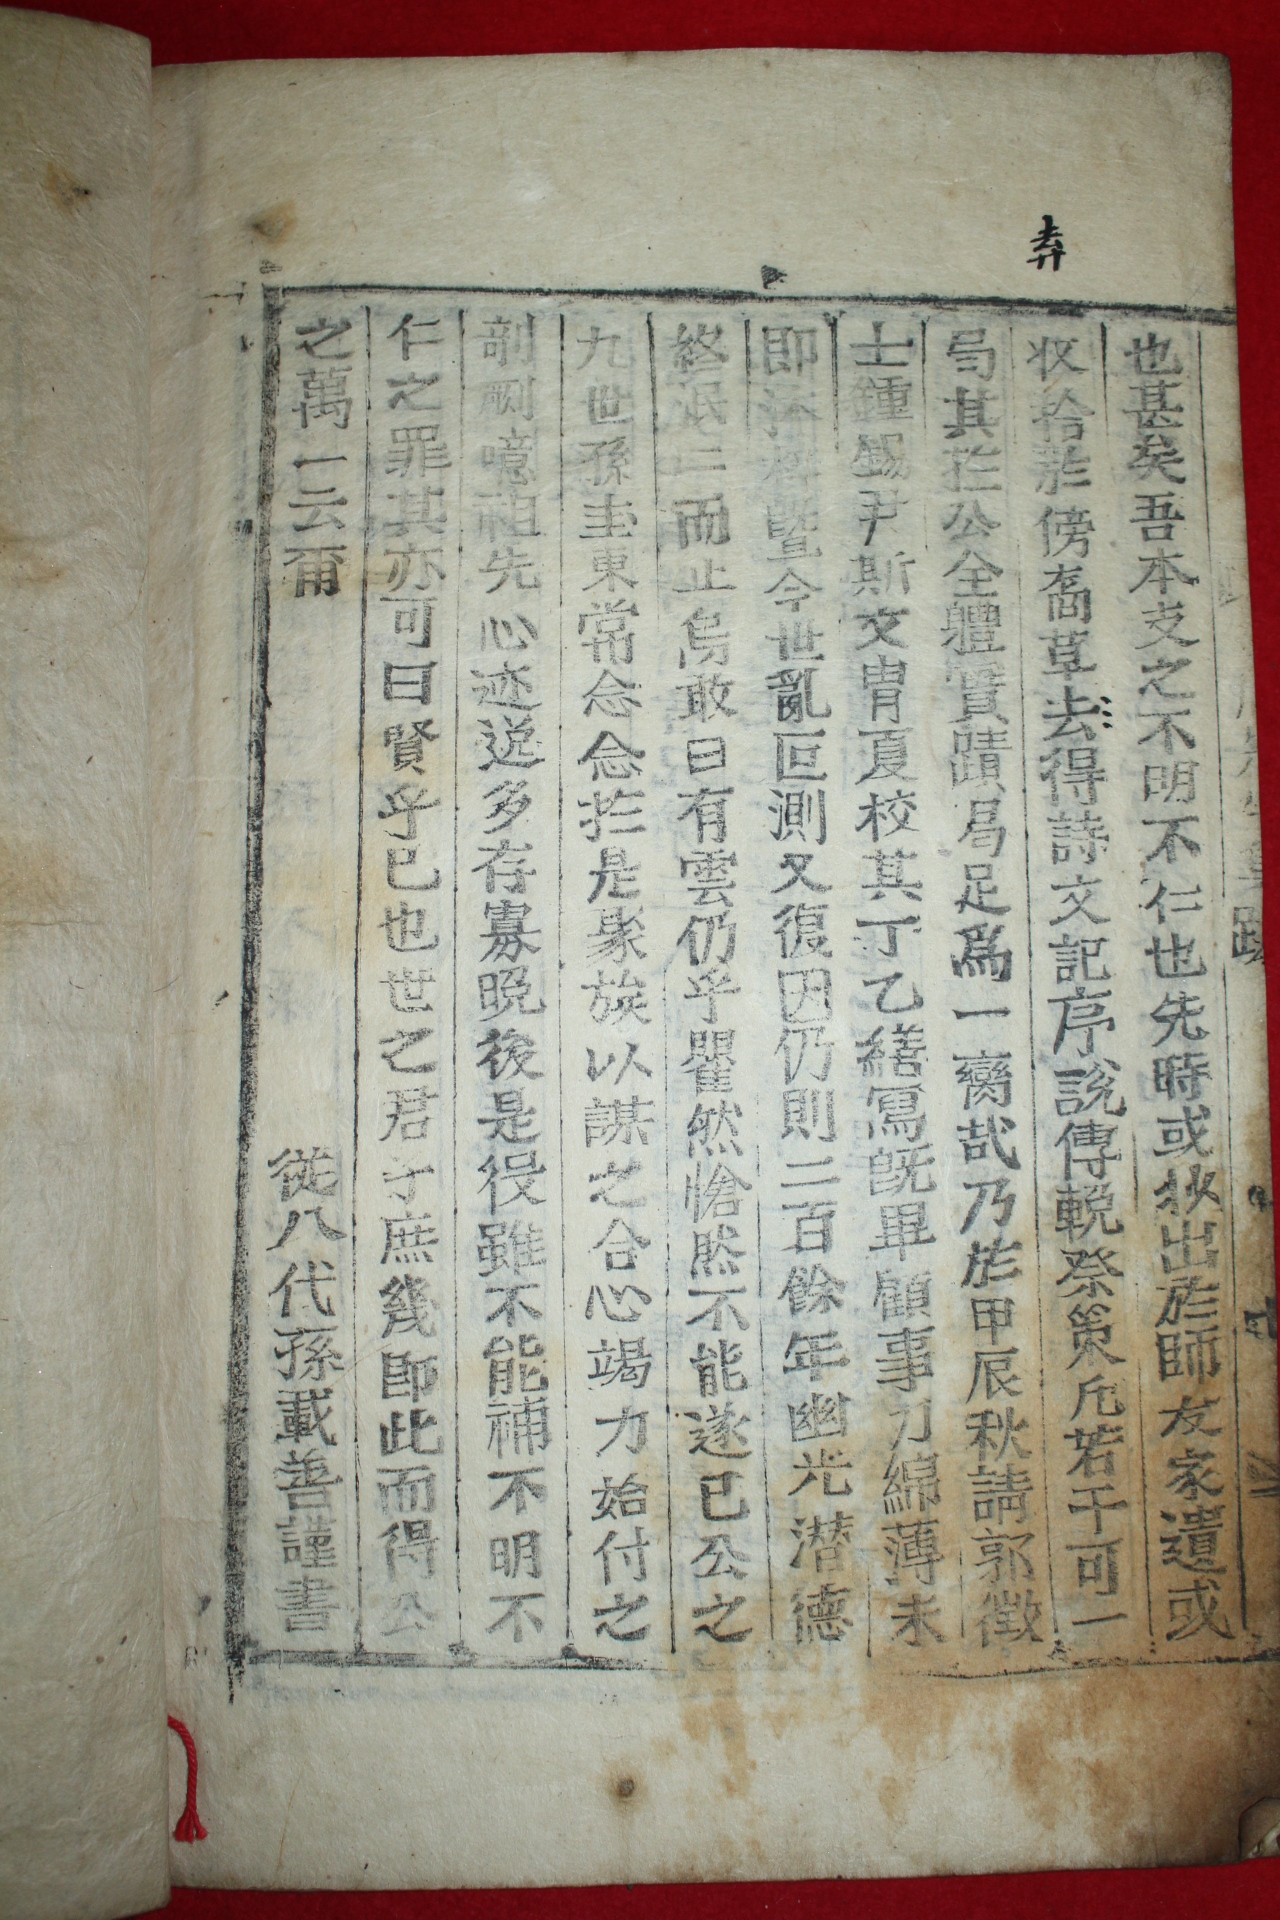 弆
也甚矣吾本支之不明不仁也先時或狄出於師友家遺或
收拾於傍裔草去得詩文記序說傳輓祭策凡若干可一
局其於公全體實蹟曷足爲一臠哉乃於甲辰秋請郭徵
士鍾錫尹斯文胄夏校其丁乙繕寫旣畢顧事力綿薄未
即 梓曁今世亂叵測又復因仍則二百餘年幽光潜德
終泯 而止烏敢曰有雲仍乎瞿然愴然不能遂已公之
九世孫圭東常念念於是聚族以謀之合心竭力始付之
剞劂噫祖先心迹逸多存寡晩後是役雖不能補不明不
仁之罪其亦可曰賢乎已也世之君子庶幾卽此而得公
之萬一云爾 從八代孫載善謹書
跋